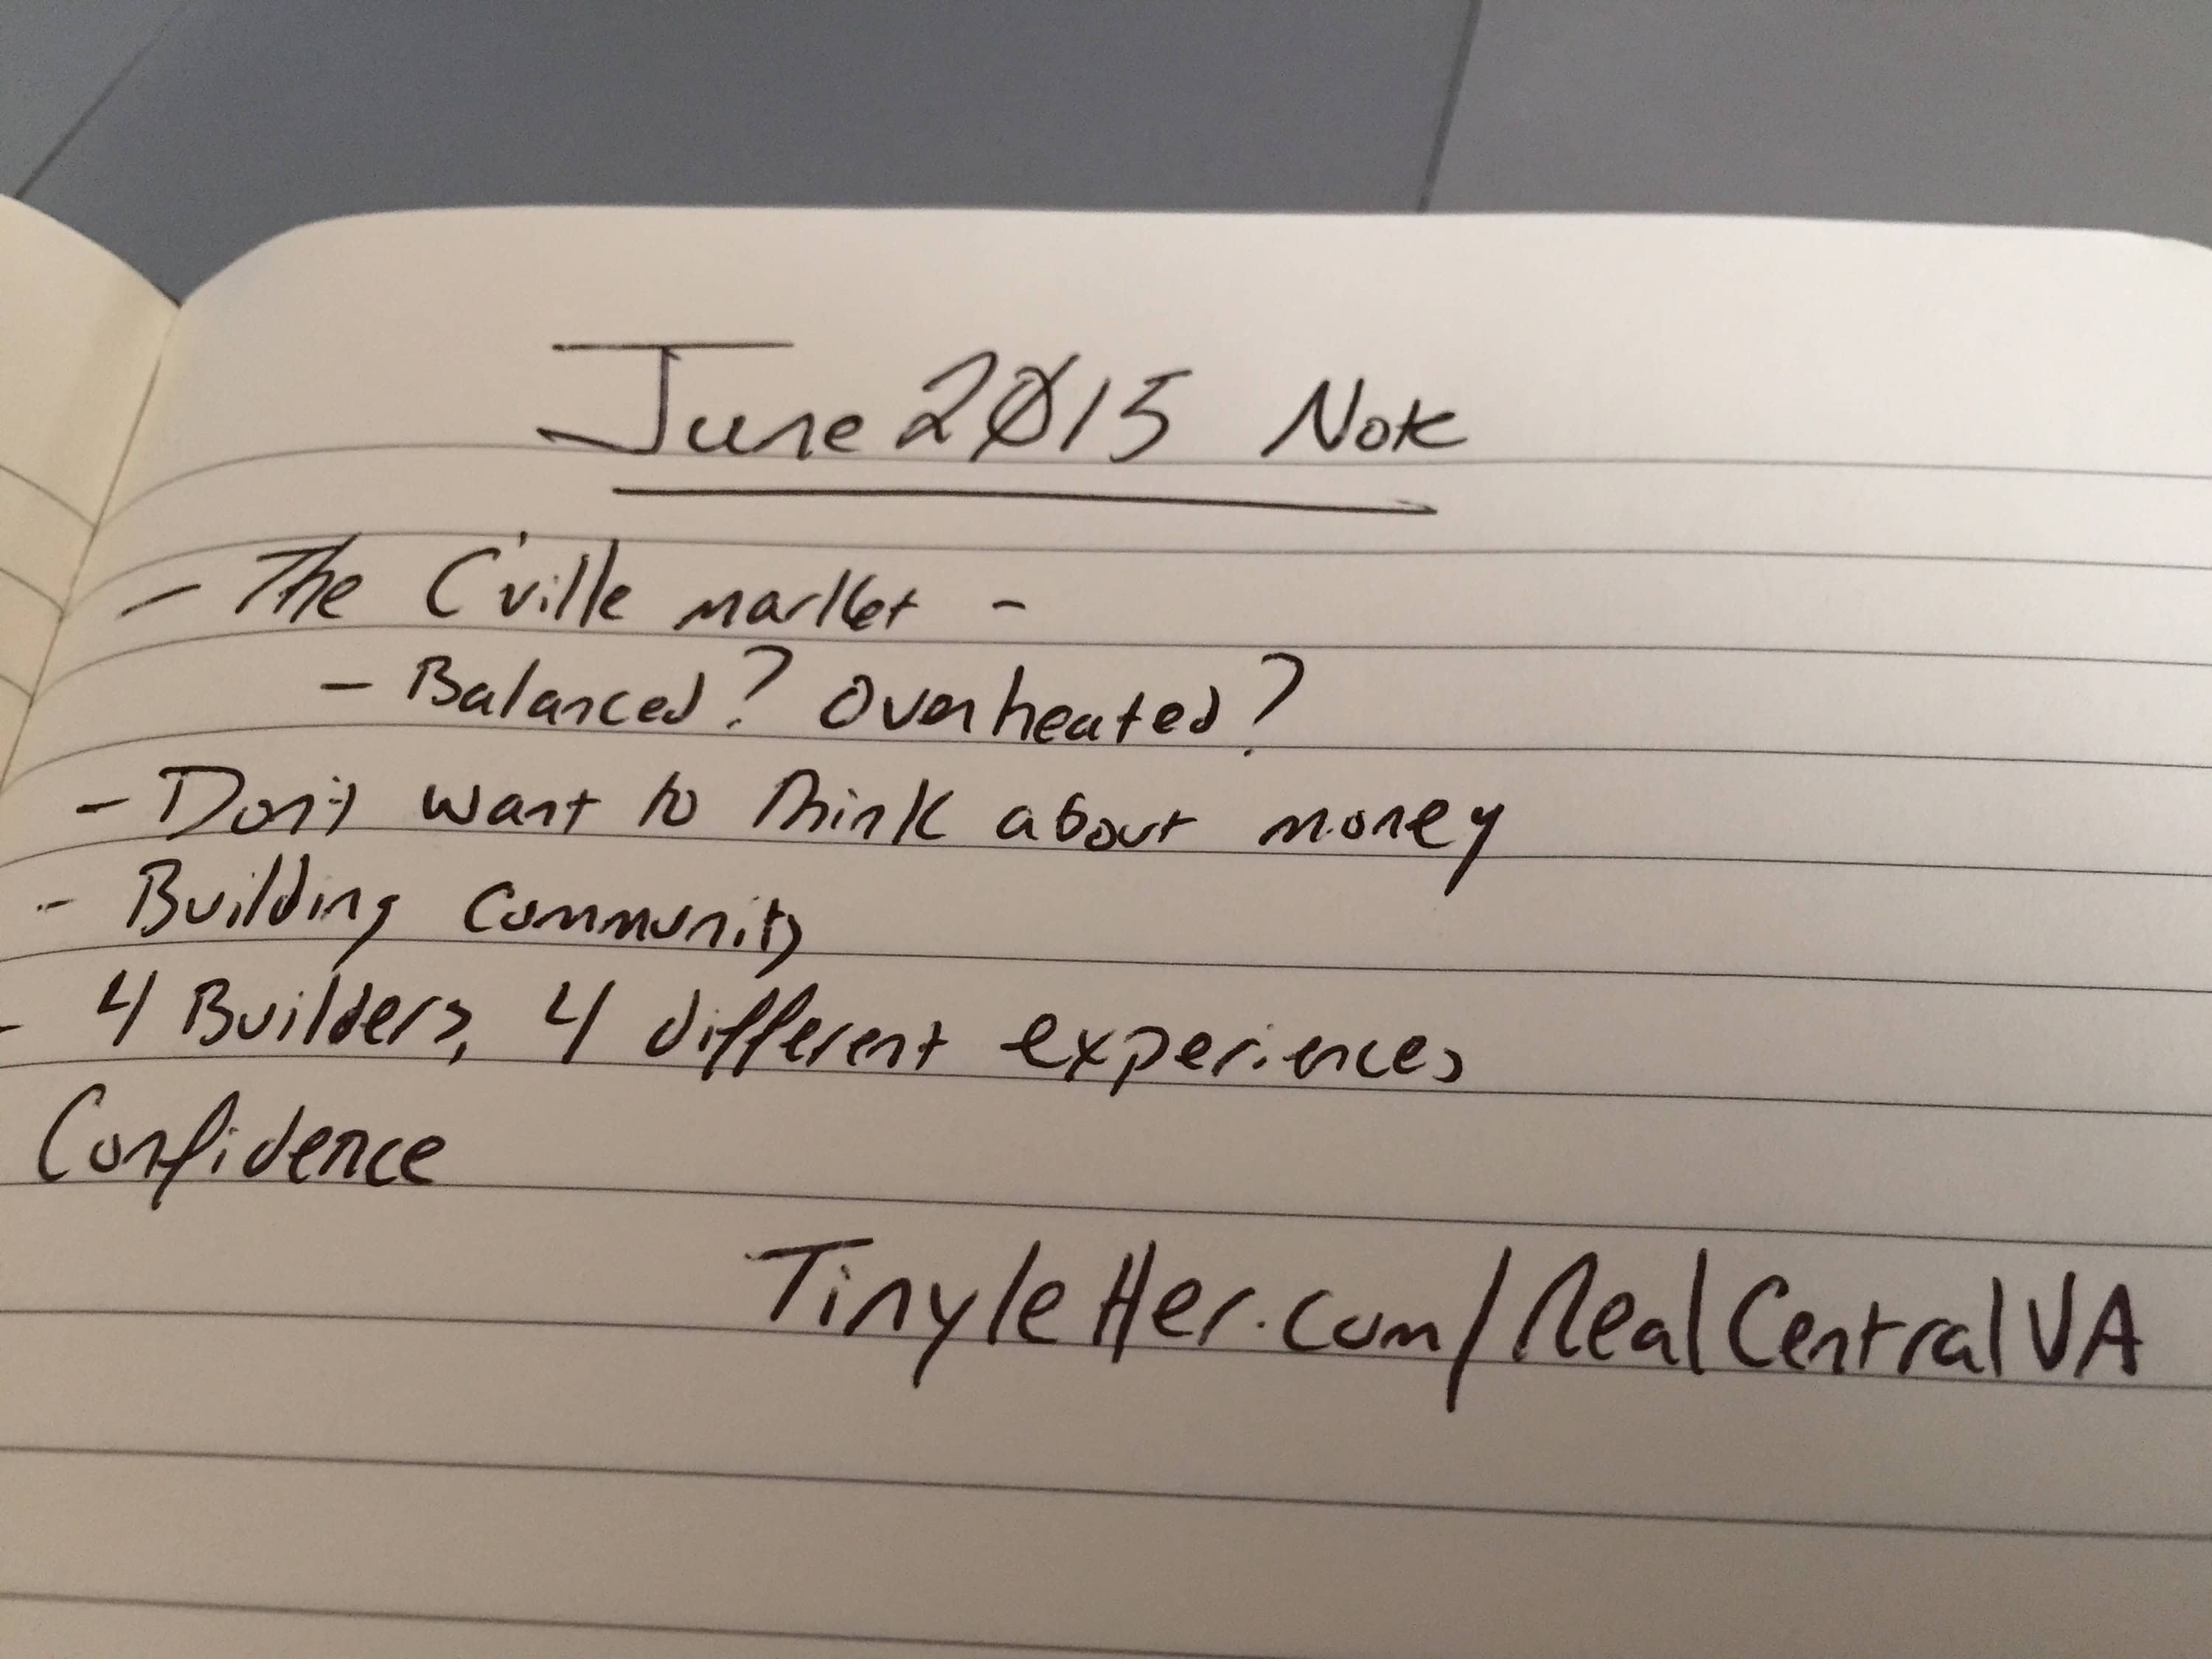 June 2015 Note
- The C'ville market -
- Balanced? Overheated?
- Don't want to think about money
- Building Community
- 4 Builders, 4 different experiences
Confidence
Tinyletter.com/RealCentralVA